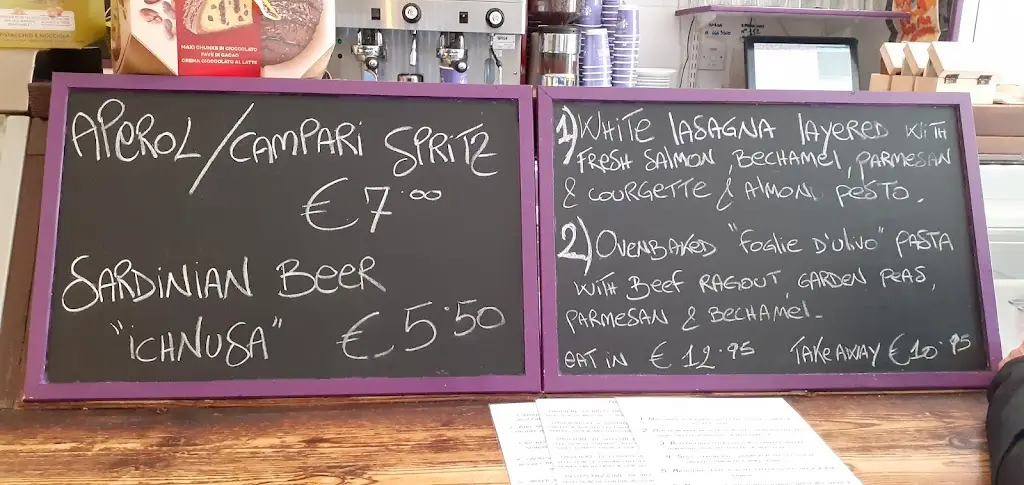 MAXI CHUNKS DI CIOCCOLATO
FAVE DI CACAO
CREMA CIOCCOLATO AL LATTE
APEROL/CAMPARI SPRITZ
€7.00
SARDINIAN BEER
"ICHNUSA" €5.50
1) WHITE LASAGNA LAYERED WITH
FRESH SALMON, BECHAMEL, PARMESAN
& COURGETTE & ALMOND PESTO.
2) OVENBAKED "FOGLIE D'ULIVO" PASTA
WITH BEEF RAGOUT, GARDEN PEAS,
PARMESAN & BECHAMEL.
EAT IN €12.95 TAKE AWAY €10.95